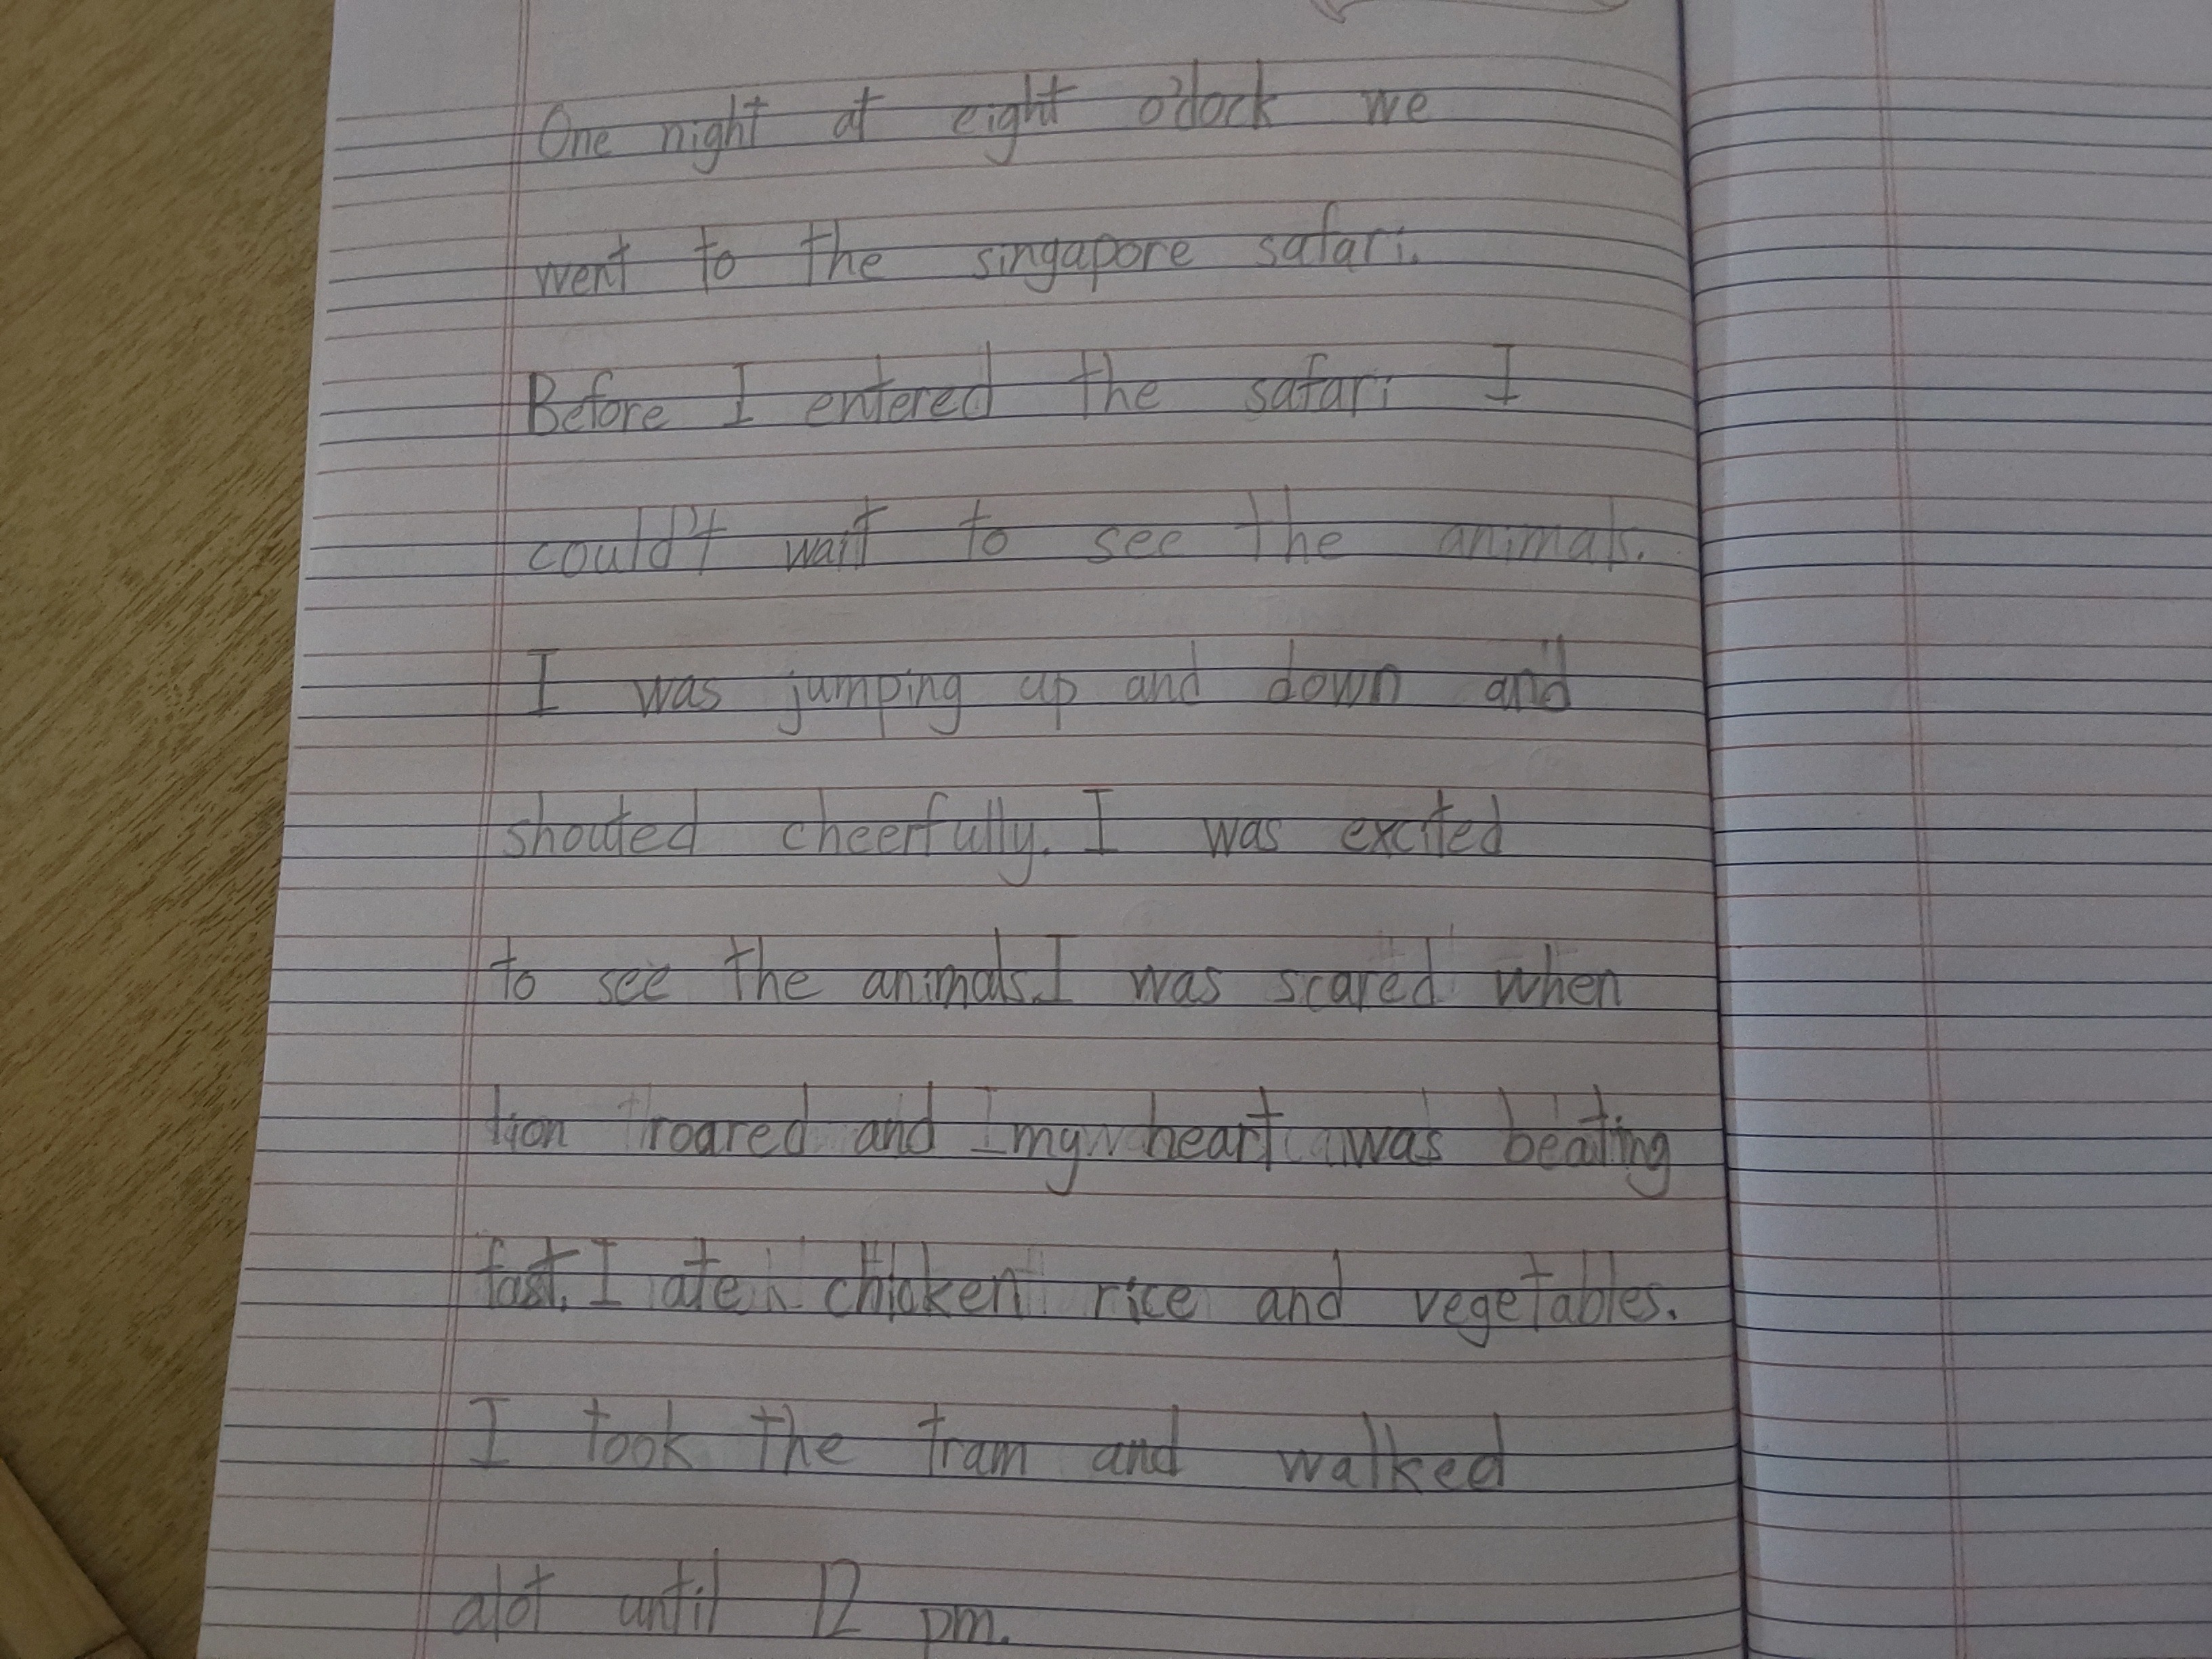 One night at eight o'clock we
went to the singapore safari.
Before I entered the safari I
could't wait to see the animals.
I was jumping up and down and
shouted cheerfully. I was excited
to see the animals. I was scared when
lion roared and my heart was beating
fast. I ate chicken rice and vegetables.
I took the tram and walked
alot until 12 pm.